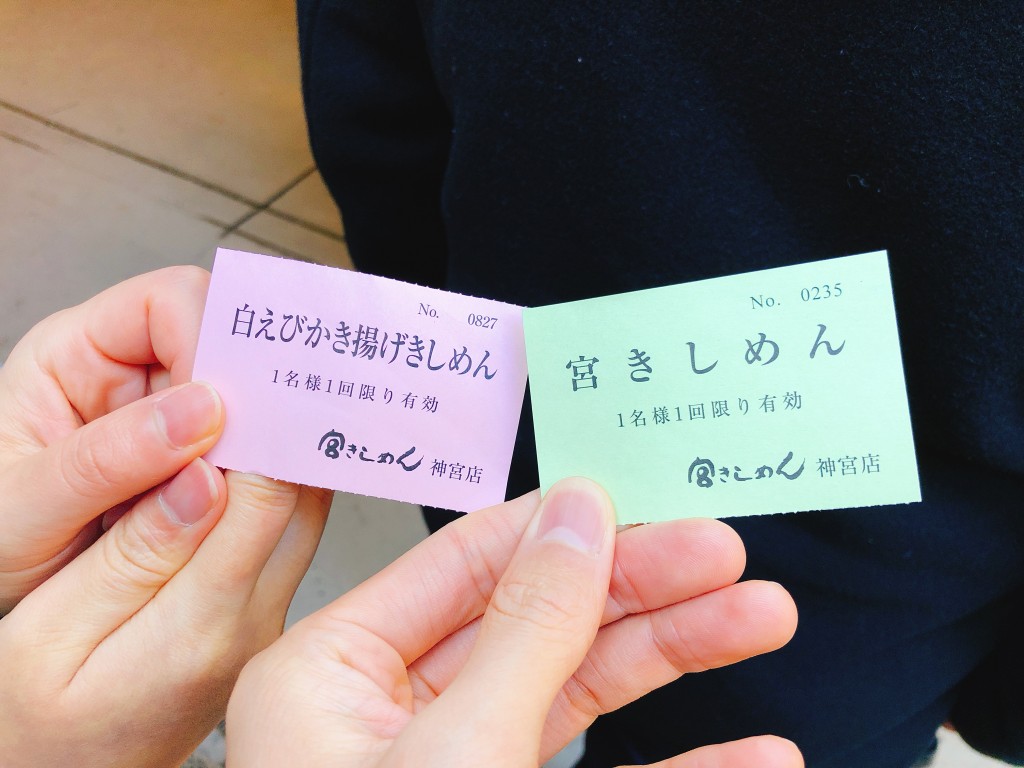 No. 0827
白えびかき揚げきしめん
1名様1回限り有効
宮きしめん 神宮店
No. 0235
宮きしめん
1名様1回限り有効
宮きしめん 神宮店